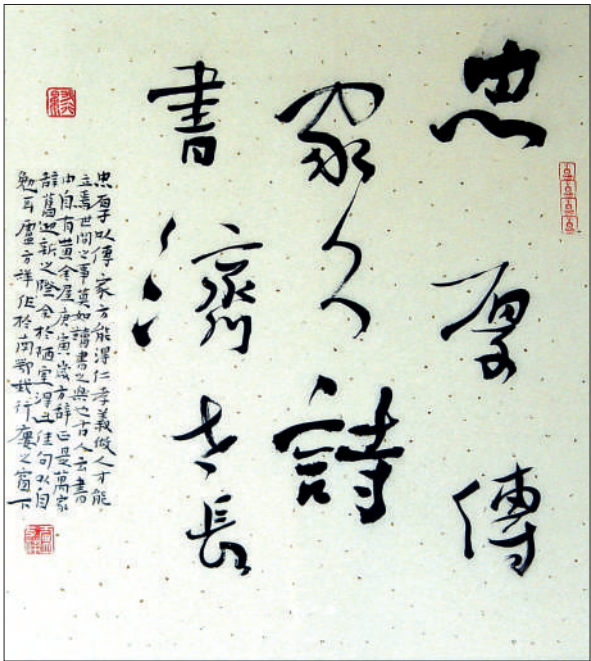 忠厚傳
家久詩
書濟世長
忠厚以傳家方能得仁孝義做人才能
立焉世間之事莫如讀書之樂也古人云書
中自有黃金屋庚寅歲方辭正是萬家
辭舊迎新之際余於陋室得此佳句以自
勉耳盧方詳作於南鄂武行廔之窗下